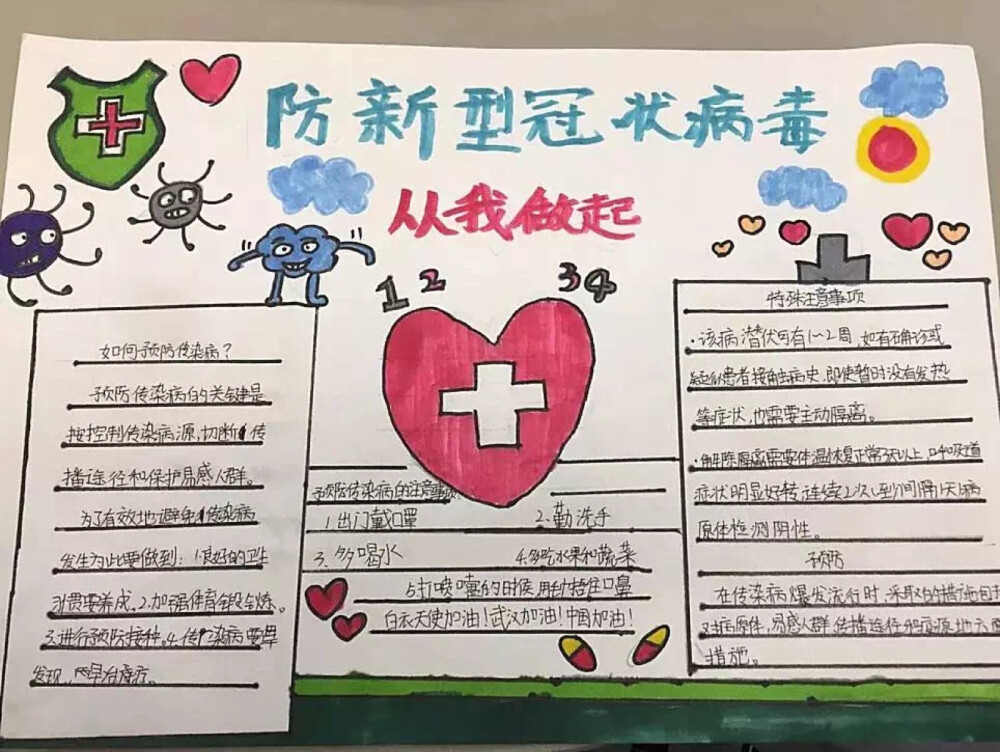 防新型冠状病毒
从我做起
1 2 3 4
如何预防传染病?
预防传染病的关键是
按控制传染病源,切断传
播途径和保护易感人群。
为了有效地避免传染病
发生为此要做到:1.良好的卫生
习惯要养成。2.加强体育锻炼。
3.进行预防接种。4.传染病要早
发现,早治疗。
预防传染病的注意事项:
1.出门戴口罩 2.勤洗手
3.多喝水 4.多吃水果和蔬菜
5.打喷嚏的时候用纸捂住口鼻
白衣天使加油!武汉加油!中国加油!
特殊注意事项
·该病潜伏可有1~2周,如有确诊或
疑似患者接触病史,即使暂时没有发热
等症状,也需要主动隔离。
·解除隔离需要体温恢复正常3天以上,呼吸道
症状明显好转,连续2次(间隔1天)病
原体检测阴性。
预防
在传染病爆发流行时,采取的措施包
对病原体,易感人群,传播途径和疫源地
措施。